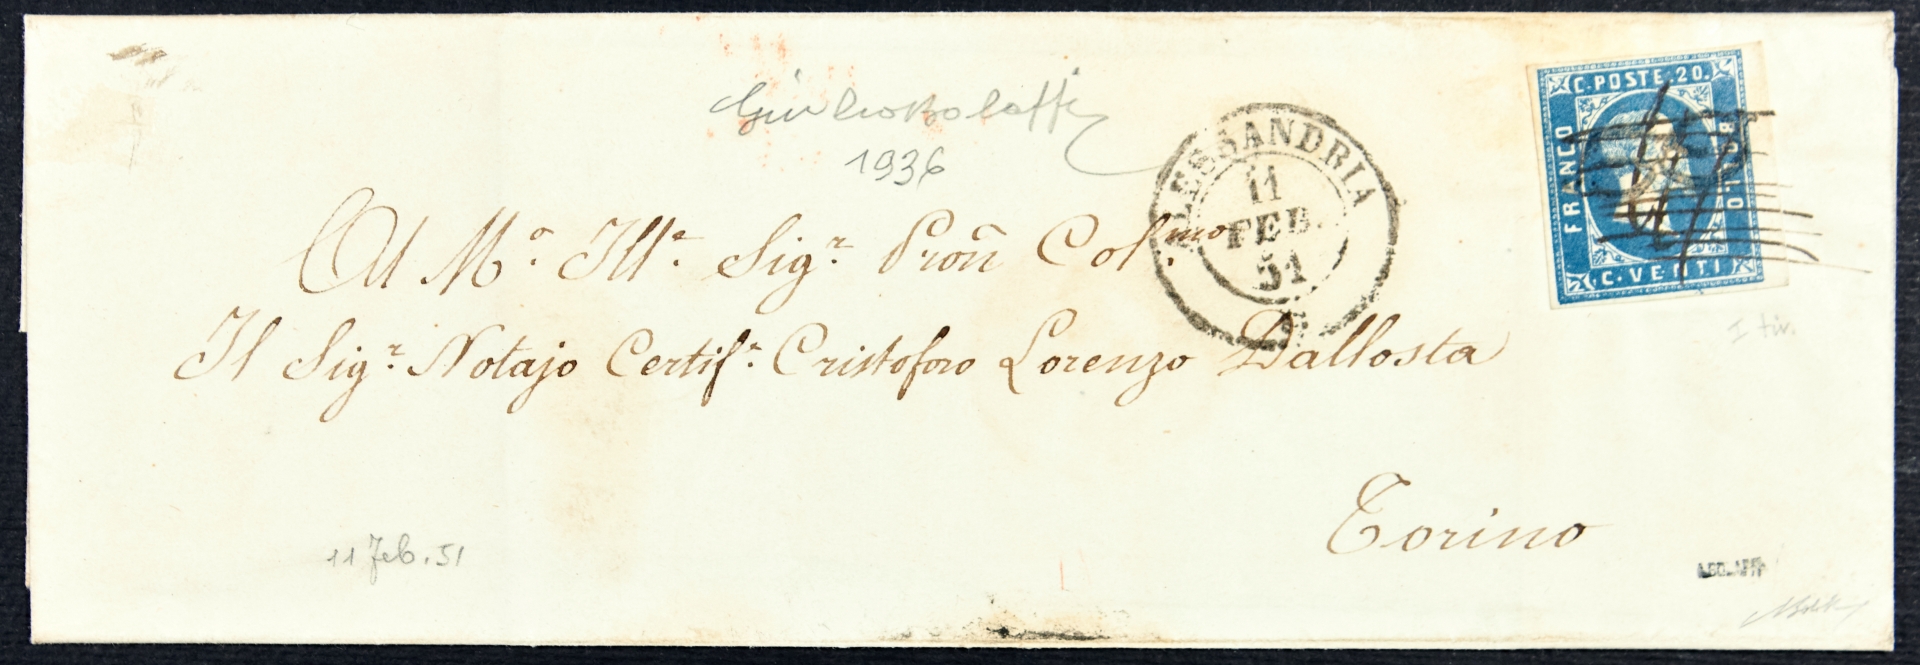 Giulio Bolaffi
1936
ALESSANDRIA
11
FEB.
51
C. POSTE. 20.
FRANCO
BOLLO
C. VENTI
I tir.
Al M.o Ill.e Sig.r Pron Col.mo
Il Sig.r Notajo Certif.r Cristoforo Lorenzo Dallosta
Torino
11 Feb. 51